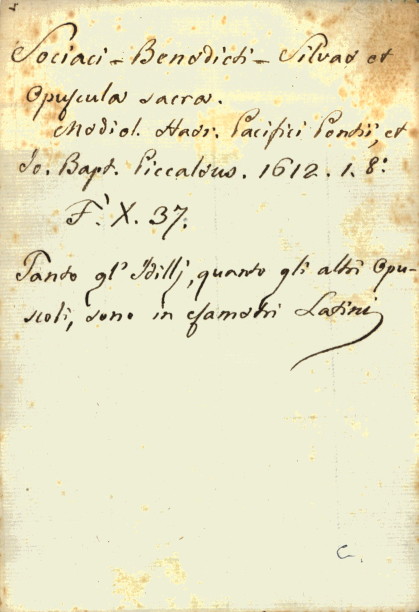 Sociaci - Benedicti - Silvae et
Opuscula sacra.
Mediol. Haer. Pacifici Pontii, et
Jo. Bapt. Piccaleus. 1612. 1. 8:
F. X. 37.
Tanto gl' Idillj, quanto gli altri Opu-
scoli, sono in esametri Latini
C.